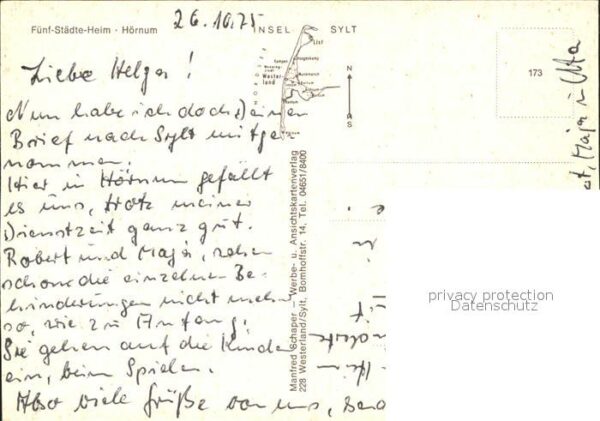 Fünf-Städte-Heim · Hörnum
26.10.75
INSEL SYLT
List
Wester-
land
N
S
173
Liebe Helga!
Nun habe ich doch Deinen
Brief nach Sylt mitge-
nommen.
Hier in Hörnum gefällt
es uns, trotz meiner
Dienstzeit ganz gut.
Robert und Maja, sehen
schon die einzelnen Be-
hinderungen nicht mehr
so, wie zu Anfang.
Sie gehen auf die Kinder
ein, beim Spielen.
Also viele Grüße von uns,
Manfred Schaper – Werbe- u. Ansichtskartenverlag
228 Westerland/Sylt, Bomhoffstr. 14, Tel. 04651/8400
Maja u.
privacy protection
Datenschutz